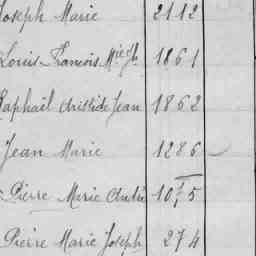 Joseph Marie 2112
Louis François Mie Jh 1861
Raphaël Aristide Jean 1862
Jean Marie 1286
Pierre Marie André 1075
Pierre Marie Joseph 274